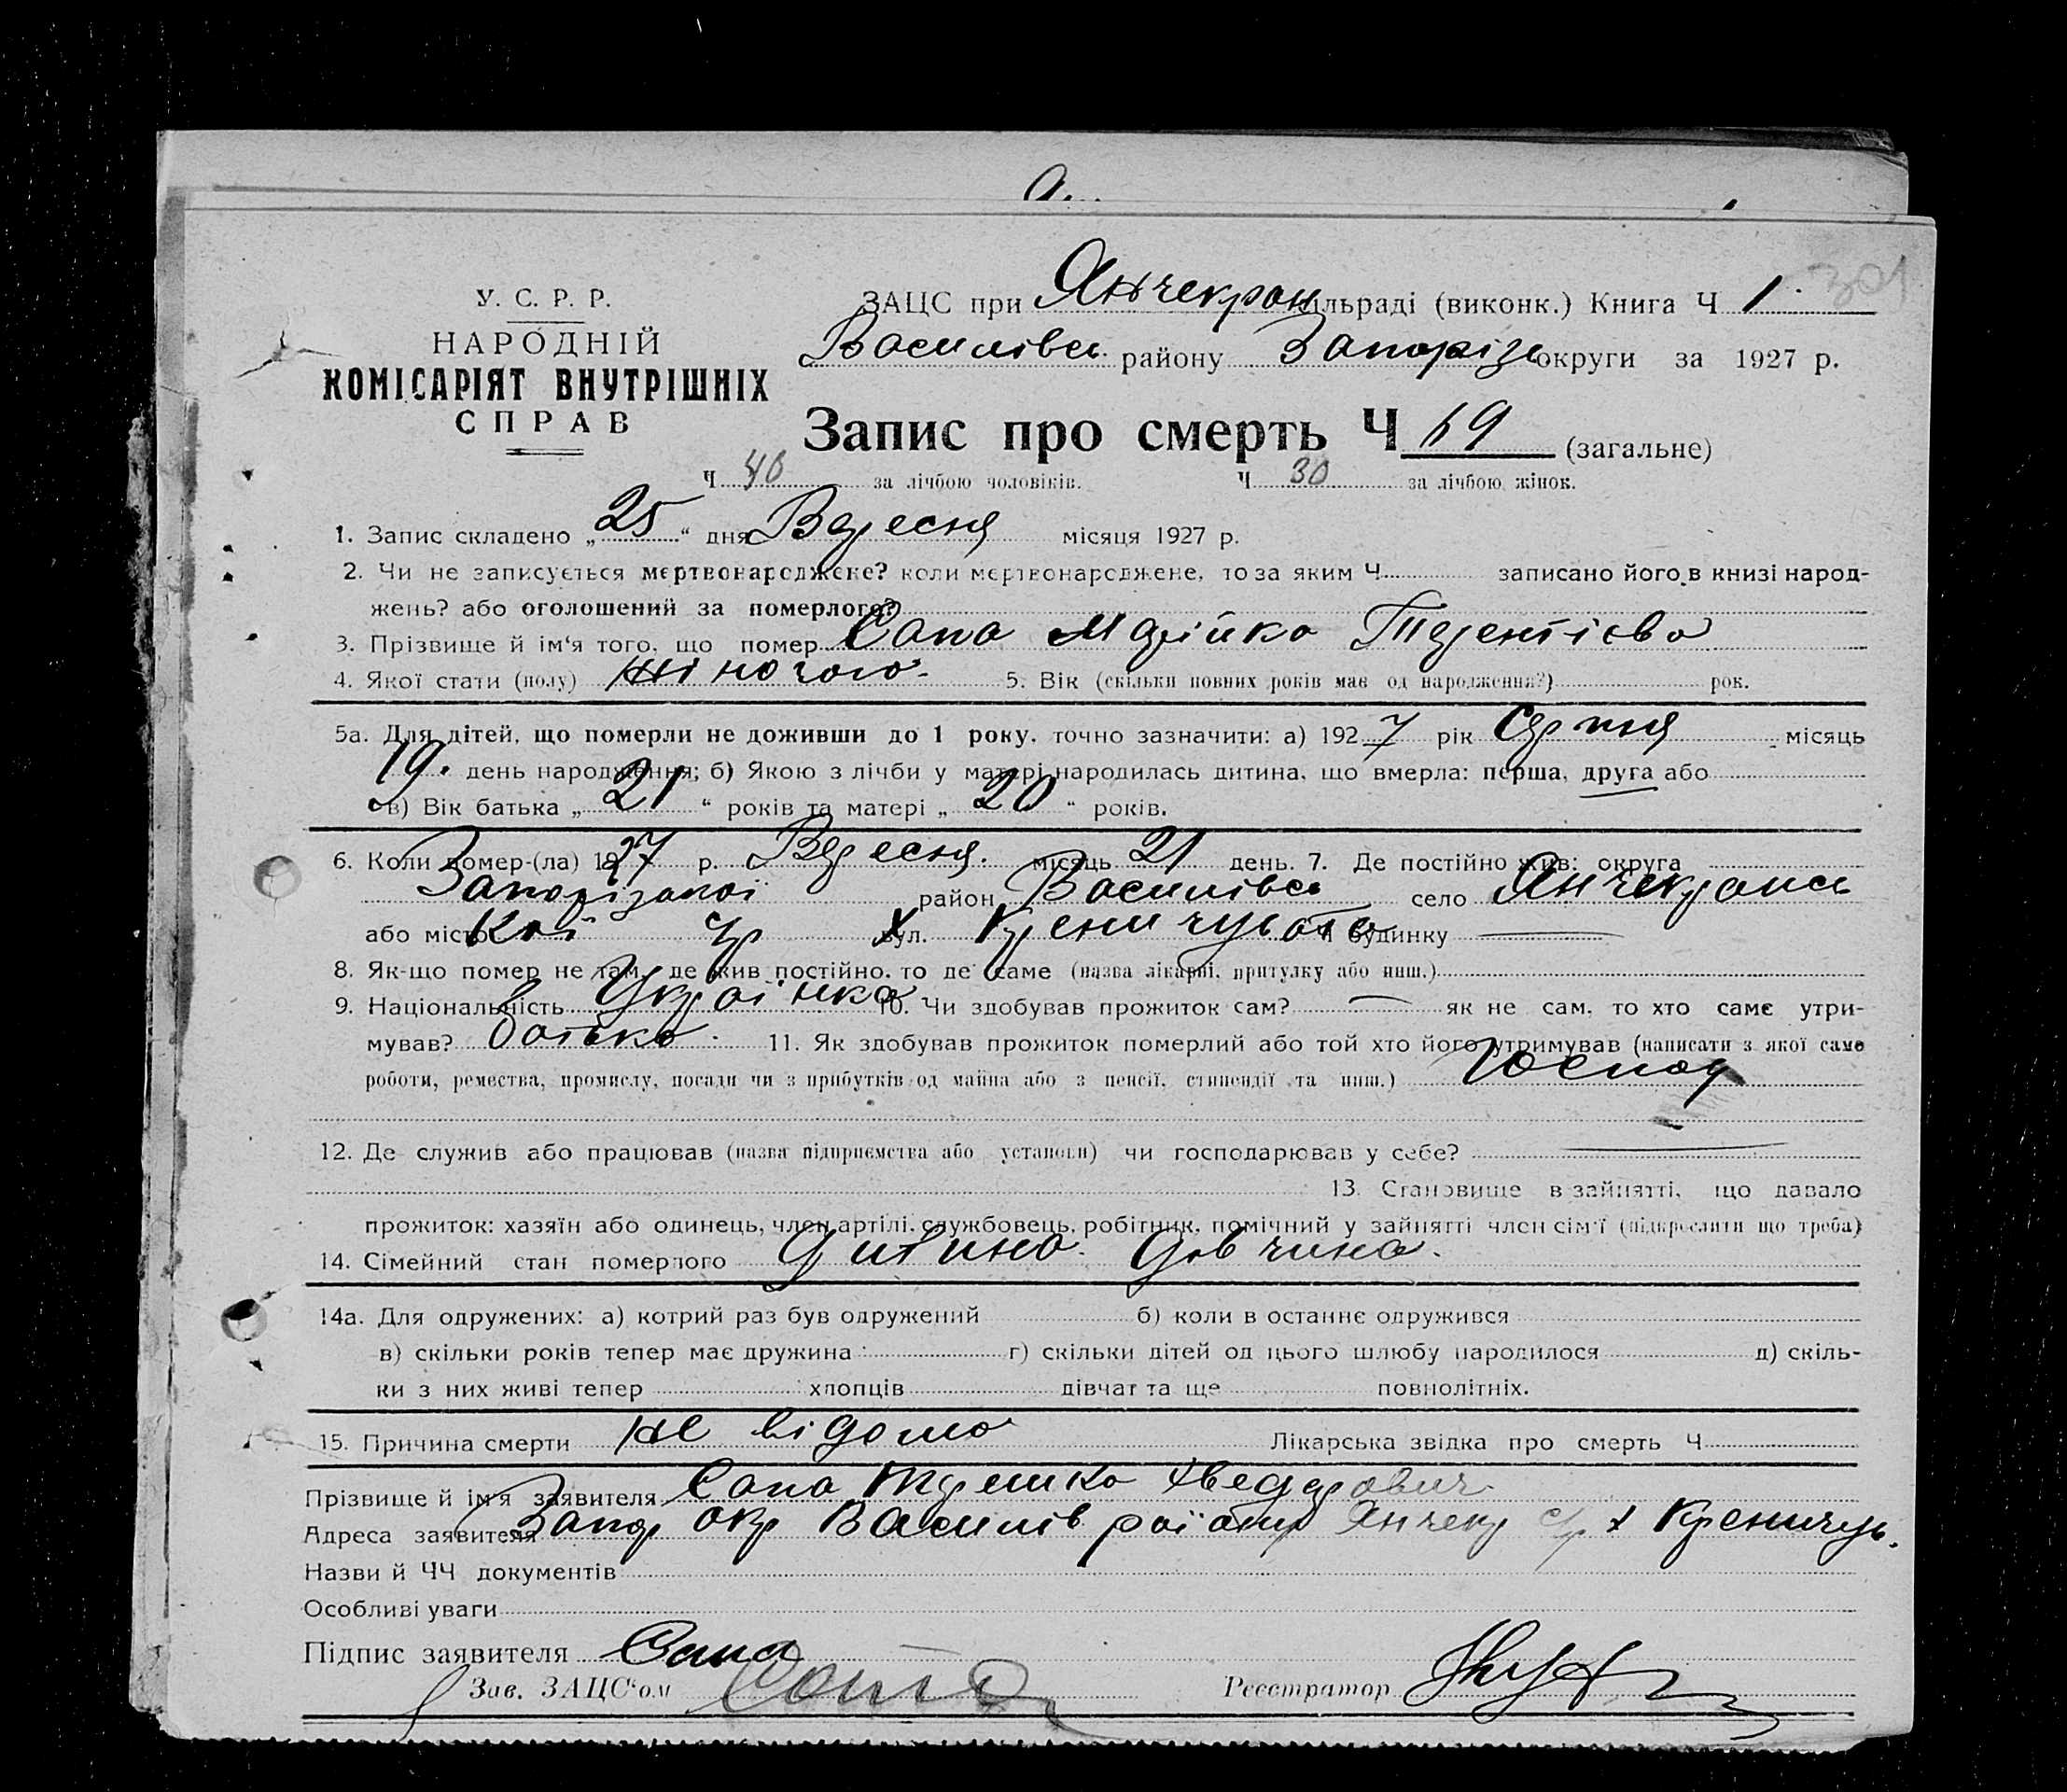 301
У. С. Р. Р.
НАРОДНІЙ
КОМІСАРІЯТ ВНУТРІШНІХ
СПРАВ
ЗАЦС при Янчекран сільраді (виконк.) Книга Ч 1.
Василівсь. району Запоріз округи за 1927 р.
Запис про смерть Ч 69 (загальне)
Ч 40 за лічбою чоловіків. Ч 30 за лічбою жінок.
1. Запис складено „ 25 “ дня Вересня місяця 1927 р.
2. Чи не записується мертвонароджене? коли мертвонароджене, то за яким Ч записано його в книзі народ-
жень? або оголошений за померлого?
3. Прізвище й ім'я того, що помер Сапа Терентієва
4. Якої стати (полу) жіночого. 5. Вік (скільки повних років має од народження?) рок.
5а. Для дітей, що померли не доживши до 1 року, точно зазначити: а) 1927 рік Серпня місяць
19. день народження; б) Якою з лічби у матері народилась дитина, що вмерла: перша, друга або
в) Вік батька „ 21 “ років та матері „ 20 “ років.
6. Коли помер-(ла) 1927 р. Вересня. місяць 21 день. 7. Де постійно жив: округа
Запорізької район Василівсь село Янчекрансь
або місто кої ср х вул. Креничувата Ч будинку —
8. Як-що помер не там, де жив постійно, то де саме (назва лікарні, притулку або инш.)
9. Національність Українка 10. Чи здобував прожиток сам? — як не сам, то хто саме утри-
мував? батько. 11. Як здобував прожиток померлий або той хто його утримував (написати з якої саме
роботи, ремества, промислу, посади чи з прибутків од майна або з пенсії, стипендії та инш.) Господ
12. Де служив або працював (назва підприємства або установи) чи господарював у себе? —
13. Становище в зайнятті, що давало
прожиток: хазяїн або одинець, член артілі, службовець, робітник, помічний у зайнятті член сім'ї (підкреслити що треба)
14. Сімейний стан померлого Дитина. Дівчина.
14а. Для одружених: а) котрий раз був одружений б) коли в останнє одружився
в) скільки років тепер має дружина г) скільки дітей од цього шлюбу народилося д) скіль-
ки з них живі тепер хлопців дівчат та ще повнолітніх.
15. Причина смерти не відомо Лікарська звідка про смерть Ч
Прізвище й ім'я заявителя Сапа Терешко Хведорович
Адреса заявителя Запор окр Василів району Янчекр с/р х Креничув.
Назви й ЧЧ документів
Особливі уваги
Підпис заявителя Сапа
Зав. ЗАЦС'ом Реєстратор